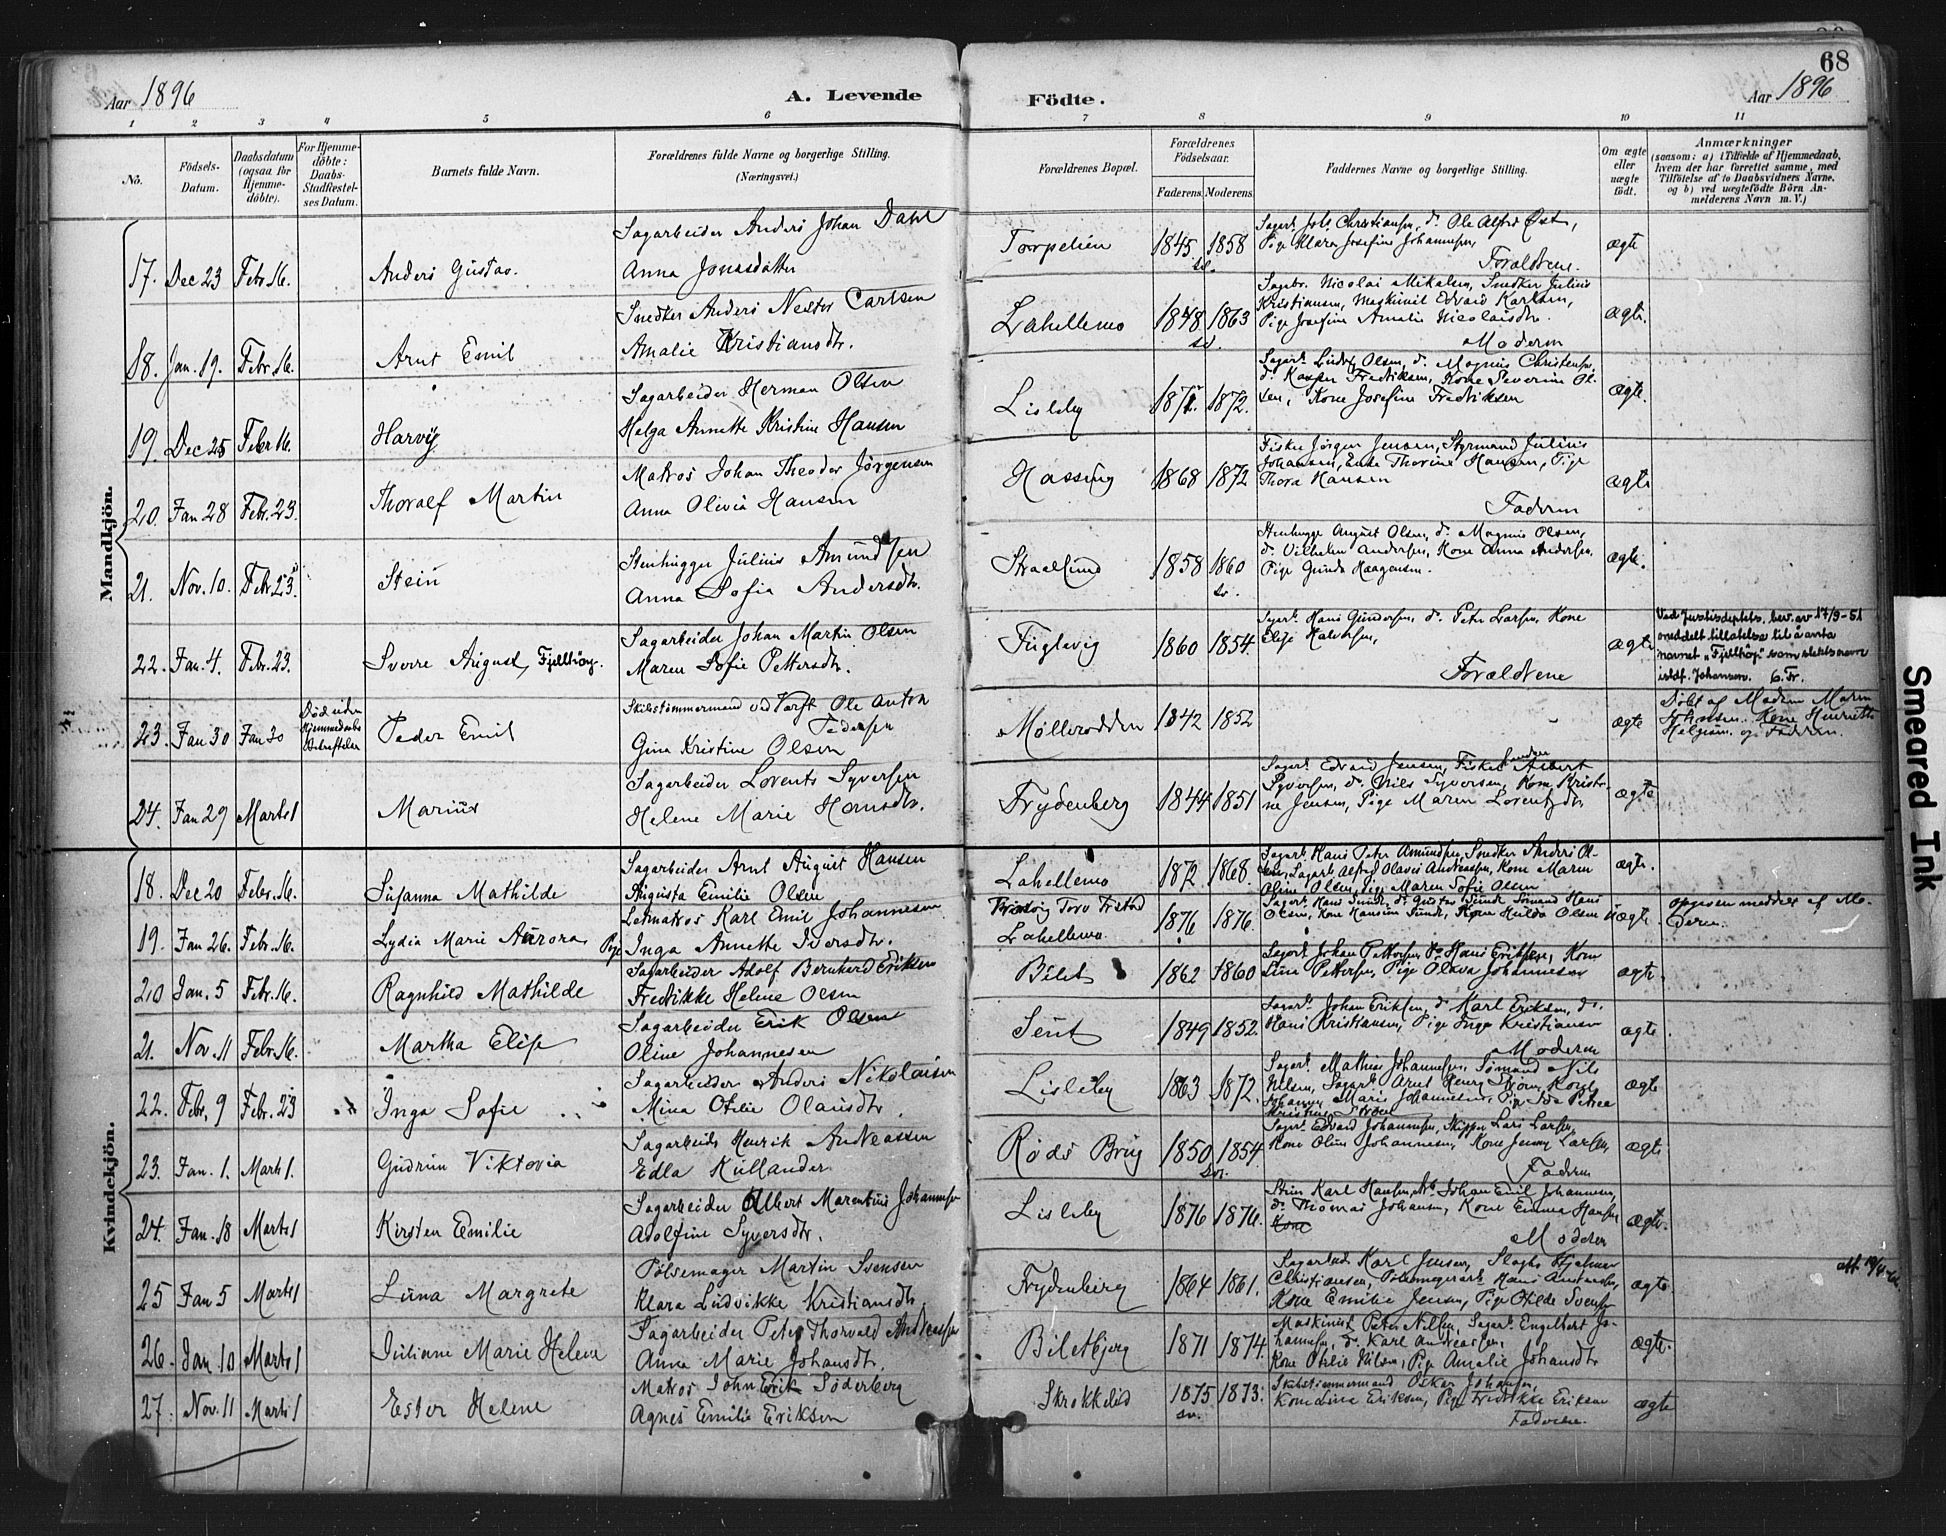 68
Aar 1896
A. Levende Födte.
Aar 1896
1 2 3 4 5 6 7 8 9 10 11
No.
Födsels-Datum.
Daabsdatum (ogsaa for Hjemme-döbte).
For Hjemme-döbte: Daabs-Stadfæstel-ses Datum.
Barnets fulde Navn.
Forældrenes fulde Navne og borgerlige Stilling.
(Næringsvei.)
Forældrenes Bopæl.
Forældrenes Födselsaar.
Faderens. Moderens.
Faddernes Navne og borgerlige Stilling.
Om ægte eller uægte födt.
Anmærkninger
(saasom: a) i Tilfælde af Hjemmedaab,
hvem der har forrettet samme, med
Tilföielse af to Daabsvidners Navne,
og b) ved uægtefödte Börn An-
melderens Navn m. V.)
Mandkjön.
17. Dec 23 Febr. 16. Anders Gustav.
Sagarbeider Anders Johan Dahl
Anna Jonasdatter
Torpelien 1845 sv. 1858
Sagarb. Johs. Christiansen, do. Ole Alfred Øst,
Pige Klara Josefine Johannesen,
Forældrene.
ægte
18. Jan. 19. Febr. 16. Arnt Emil
Snedker Anders Nestor Carlsen
Amalie Kristiansdtr.
Lahellemo 1848 sv. 1863
Sagbr. Nicolai Mikalsen, Snedker Julius
Kristiansen, Maskinist Edvard Karlsen,
Pige Josefine Amalie Nicolaisdtr.
Moderen
ægte.
19. Dec 25 Febr 16. Harvig
Sagarbeider Herman Olsen
Helga Annette Kristine Hansen
Lisleby 1871. 1872.
Sagarb. Ludvig Olsen, do. Magnus Christensen,
do. Kasper Fredriksen, Kone Severine Ol-
sen, Kone Josefine Fredriksen
ægte.
20. Jan 28 Febr. 23. Thoralf Martin
Matros Johan Theodor Jörgensen
Anna Olivia Hansen
Hassing 1868 1872
Fisker Jörgen Jensen, Styrmand Julius
Johansen, Enke Thorine Hansen, Pige
Thora Hansen
Faderen
ægte
21. Nov. 10. Febr. 23. Stein
Stenhugger Julius Amundsen
Anna Sofia Andersdtr.
Straalsund 1858 1860 sv.
Stenhugge August Olsen, do. Magnus Olsen,
do. Vilhelm Andersen, Kone Anna Andersen,
Pige Gunda Haagensen.
ægte.
22. Jan. 4. Febr. 23. Sverre August, Fjellhöy.
Sagarbeider Johan Martin Olsen
Maren Sofie Pettersdtr.
Fuglevig 1860 1854.
Sgarb. Hans Gundersen, do. Peter Larsen, Kone
Elise Halvorsen,
Forældrene
ægte
Ved Justisdeptets. bev. av 17/9-51
meddelt tillatelse til å anta
navnet "Fjellhöy" som slektsnavn
istdf. Johansen. G. Fr.
23. Jan 30 Jan 30
Död uden Hjemmedaabs Bekræftelse
Peder Emil
Skibstömmermand ved Værft Ole Anton
Pedersen
Gina Kristine Olsen
Möllerodden 1842 1852
ægte
Döbt af Madam Maren
Johnsen. Kone Henriette
Helgesen. og Faderen.
24. Jan 29 Marts 1 Marius
Sagarbeider Lorents Syversen
Helene Marie Hansdtr.
Frydenberg 1844 1851
Sagarb. Edvard Jensen, Fisker Albert
Syversen, do. Nils Syversen, Kone Kristi-
ne Jensen, Pige Maren Lorentzdtr
ægte
Kvindekjön.
18. Dec 20 Febr. 16. Susanna Mathilde
Sagarbeider Arnt August Hansen
Augusta Emilie Olsen
Lahellemo 1872 1868.
Sagarb. Hans Peter Amundsen, Snedker Anders Ol-
sen, Sagarb. Alfred Olavus Andreassen, Kone Maren
Oline Olsen, Pige Maren Sofie Olsen
ægte.
19. Jan 26. Febr. 16. Lydia Marie Aurora
Letmatros Karl Emil Johannesen
Pige Inga Annette Iversdtr.
Torv Fristad
Lahellemo. 1876 1876.
Sagarb. Hans Sunde, do. Gustav Sunde, Sömand Hans
Olsen, Kone Hansine Sunde, Kone Hulda Olsen
uægte.
opgiven meddelt af Mo-
deren.
20 Jan. 5 Febr. 16. Ragnhild Mathilde
Sagarbeider Adolf Bernhard Eriksen
Fredrikke Helene Olsen
Bilet 1862 1860
Sagarb. Johan Pettersen, do. Hans Eriksen, Kone
Lina Pettersen, Pige Olava Johannesen
ægte.
21. Nov. 11 Febr. 16. Martha Elise
Sagarbeider Erik Olsen
Oline Johannesen
Seut 1849 1852.
Sagarb. Johan Eriksen, do. Karl Eriksen, do.
Hans Kristiansen, Pige Inga Kristiansen
Moderen
ægte
22. Febr. 9 Febr. 23 Inga Sofie
Sagarbeider Anders Nikolaisen
Mina Otilie Olausdtr.
Lisleby 1863 1872.
Sagarb. Mathias Johannesen, Sömand Nils
Nilsen, Sagarb. Arnt Henry Ström, Kone
Johanne Marie Johannesen, Pige Ida Petrea
Kristine Ström
ægte
23. Jan. 1. Marts 1. Gudrun Viktoria
Sagarbeids Henrik Andreassen
Edla Kullander
Röds Brug 1850 sv. 1854.
Sagarb. Edvard Johannesen, Skipper Lars Larsen,
Kone Oline Johannesen, Kone Jenny Larsen,
Faderen
ægte
24. Jan. 18 Marts 1 Kirsten Emilie
Sagarbeider Albert Marentius Johannesen
Adolfine Syversdtr.
Lisleby 1876 1876.
Karl Hansen, Johan Emil Johannesen,
do. Thomas Johansen, Kone Emma Hansen
Kone
Moderen
ægte.
25 Jan 5 Marts 1 Luna Margrete
Pölsemager Martin Svensen
Klara Ludvikke Kristiansdtr.
Frydenberg 1864 1861.
Sagarbeid Karl Jensen, Hjalmar
Christiansen, Hans Andersen,
Kone Emilie Jensen, Pige Otilde Svensen
ægte.
26. Jan. 10 Marts 1 Juliane Marie Helene
Sagarbeider Peter Thorvald Andreassen
Anna Marie Johansdtr.
Biletbjerg 1871 1874.
Maskinist Peter Nilsen, Sagarb. Engelbert Jo-
hannesen, do. Karl Andreassen,
Kone Otilie Nilsen, Pige Amalie Johansdtr
ægte.
27. Nov. 11 Marts 1 Ester Helene
Matros John Erik Söderberg
Agnes Emilie Eriksen
Skrokkelöd 1875 sv. 1873.
Skibstömmermand Oskar Johansen,
Kone Lina Eriksen, Pige Fredrikke Eriksen
Faderen.
ægte
Smeared Ink